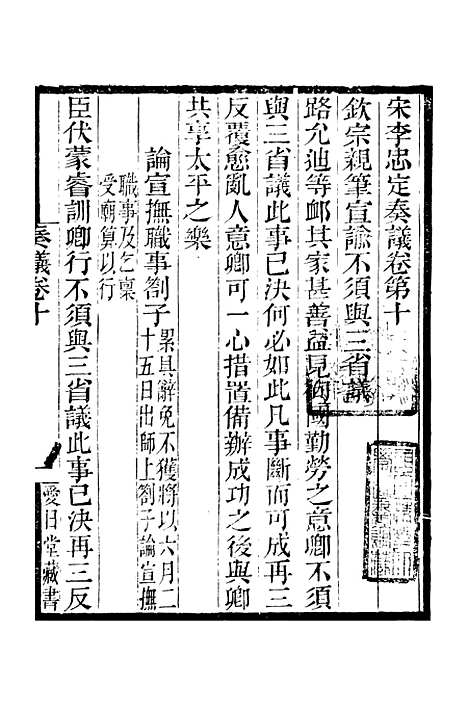 宋李忠定奏議卷第十
欽宗親筆宣諭不須與三省議
路允迪等卹其家甚善益見徇國勤勞之意卿不須
與三省議此事已決何必如此凡事斷而可成再三
反覆愈亂人意卿可一心措置備辦成功之後與卿
共享太平之樂
論宣撫職事劄子
累具辭免不獲將以六月二
十五日出師上劄子論宣撫
職事及乞稟
受廟算以行
臣伏蒙睿訓卿行不須與三省議此事已決再三反
奏議卷十
一
愛日堂藏書